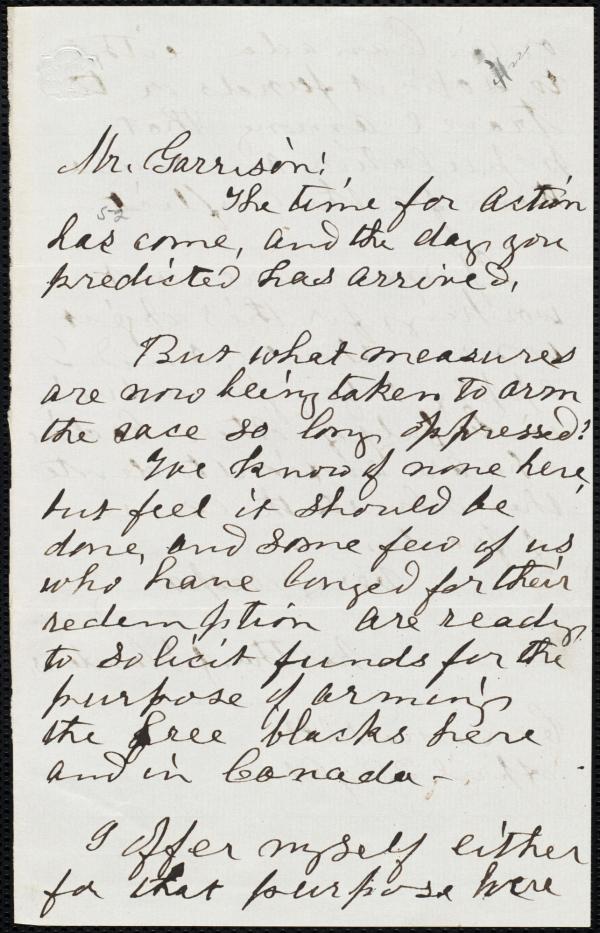 Mr. Garrison!
The time for action
52
has come, and the day you
predicted has arrived,
But what measures
are now being taken to arm
the race so long oppressed?
We know of none here,
but feel it should be
done, and some few of us
who have longed for their
redemption are ready
to solicit funds for the
purpose of arming
the free blacks here
and in Canada -
I offer myself either
for that purpose here